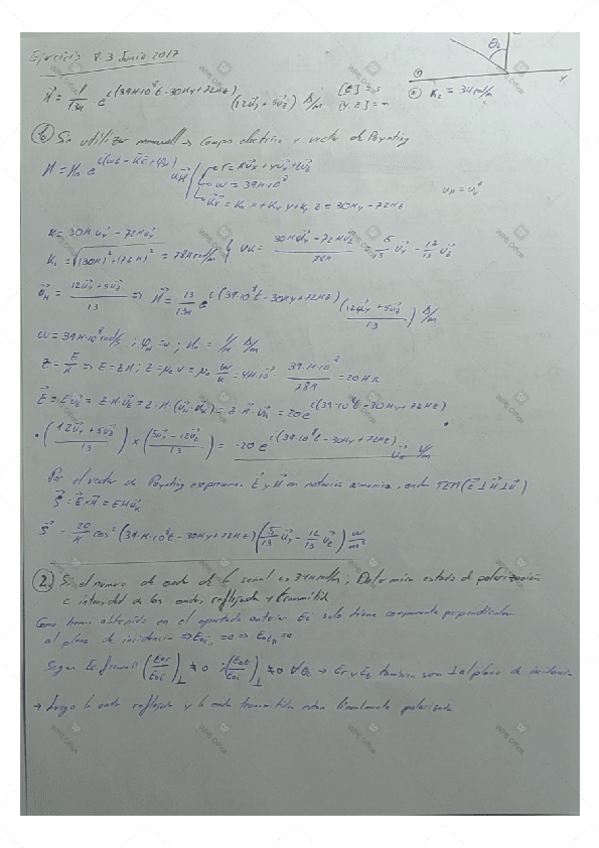 Ejercicio P.3 Junio 2017
H⃗ = 1/13π e^{i(39π·10⁸t - 30πy + 72πz)} (12u⃗y + 5u⃗z) A/m [t] = s [y, z] = m
θ₀
① ② K₂ = 34π rad/m Y
① Sin utilizar maxwell → Campo electrico y vector de Poynting
H = H₀ e^{i(ωt - K⃗r⃗ + φH)} u⃗H r = xu⃗x + yu⃗y + zu⃗z
ω = 39π·10⁸
K⃗r⃗ = Kx x + Ky y + Kz z = 30πy - 72πz
K = 30πu⃗y - 72πu⃗z
K₁ = √((30π)² + (72π)²) = 78π rad/m ; uK = (30πu⃗y - 72πu⃗z)/78π = 5/13 u⃗y - 12/13 u⃗z
u⃗H = (12u⃗y + 5u⃗z)/13 ⇒ H⃗ = 13/13π e^{i(39π·10⁸t - 30πy + 72πz)} (12u⃗y + 5u⃗z)/13 A/m
ω = 39π·10⁸ rad/s ; φH = 0 ; H₀ = 1/π A/m
Z = E/H ⇒ E = ZH ; Z = μ₀v = μ₀ ω/K = 4π·10⁻⁷ · 39·π·10⁸/78π = 20πΩ
E⃗ = E u⃗E = Z·H·u⃗E = Z·H·(u⃗H × u⃗K) = 20 e^{i(39·10⁸t - 30πy + 72πz)} ·
· ((12u⃗y + 5u⃗z)/13) × ((5u⃗y - 12u⃗z)/13) = -20 e^{i(39·10⁸t - 30πy + 72πz)} u⃗x V/m
Por el vector de Poynting expresamos E⃗ y H⃗ en notación armonica, onda TEM (E⃗ ⊥ H⃗ ⊥ u⃗)
S⃗ = E⃗ × H⃗ = EHu⃗K
S⃗ = 20/π cos²(39·π·10⁸t - 30πy + 72πz) (5/13 u⃗y - 12/13 u⃗z) W/m²
② Si el numero de onda de la señal es 34π rad/m ; Determina estado de polarización
e intensidad de las ondas reflejada y transmitida
Como hemos obtenido en el apartado anterior Ei solo tiene componente perpendicular
al plano de incidencia ⇒ E₀i∥ = 0 ⇒
Segun Ec fresnel (E₀r/E₀i)⊥ ≠ 0 ; (E₀t/E₀i)⊥ ≠ 0 ∀θi → Er y Et tambien son ⊥ al plano de incidencia
→ Luego la onda reflejada y la onda transmitida estan linealmente polarizada